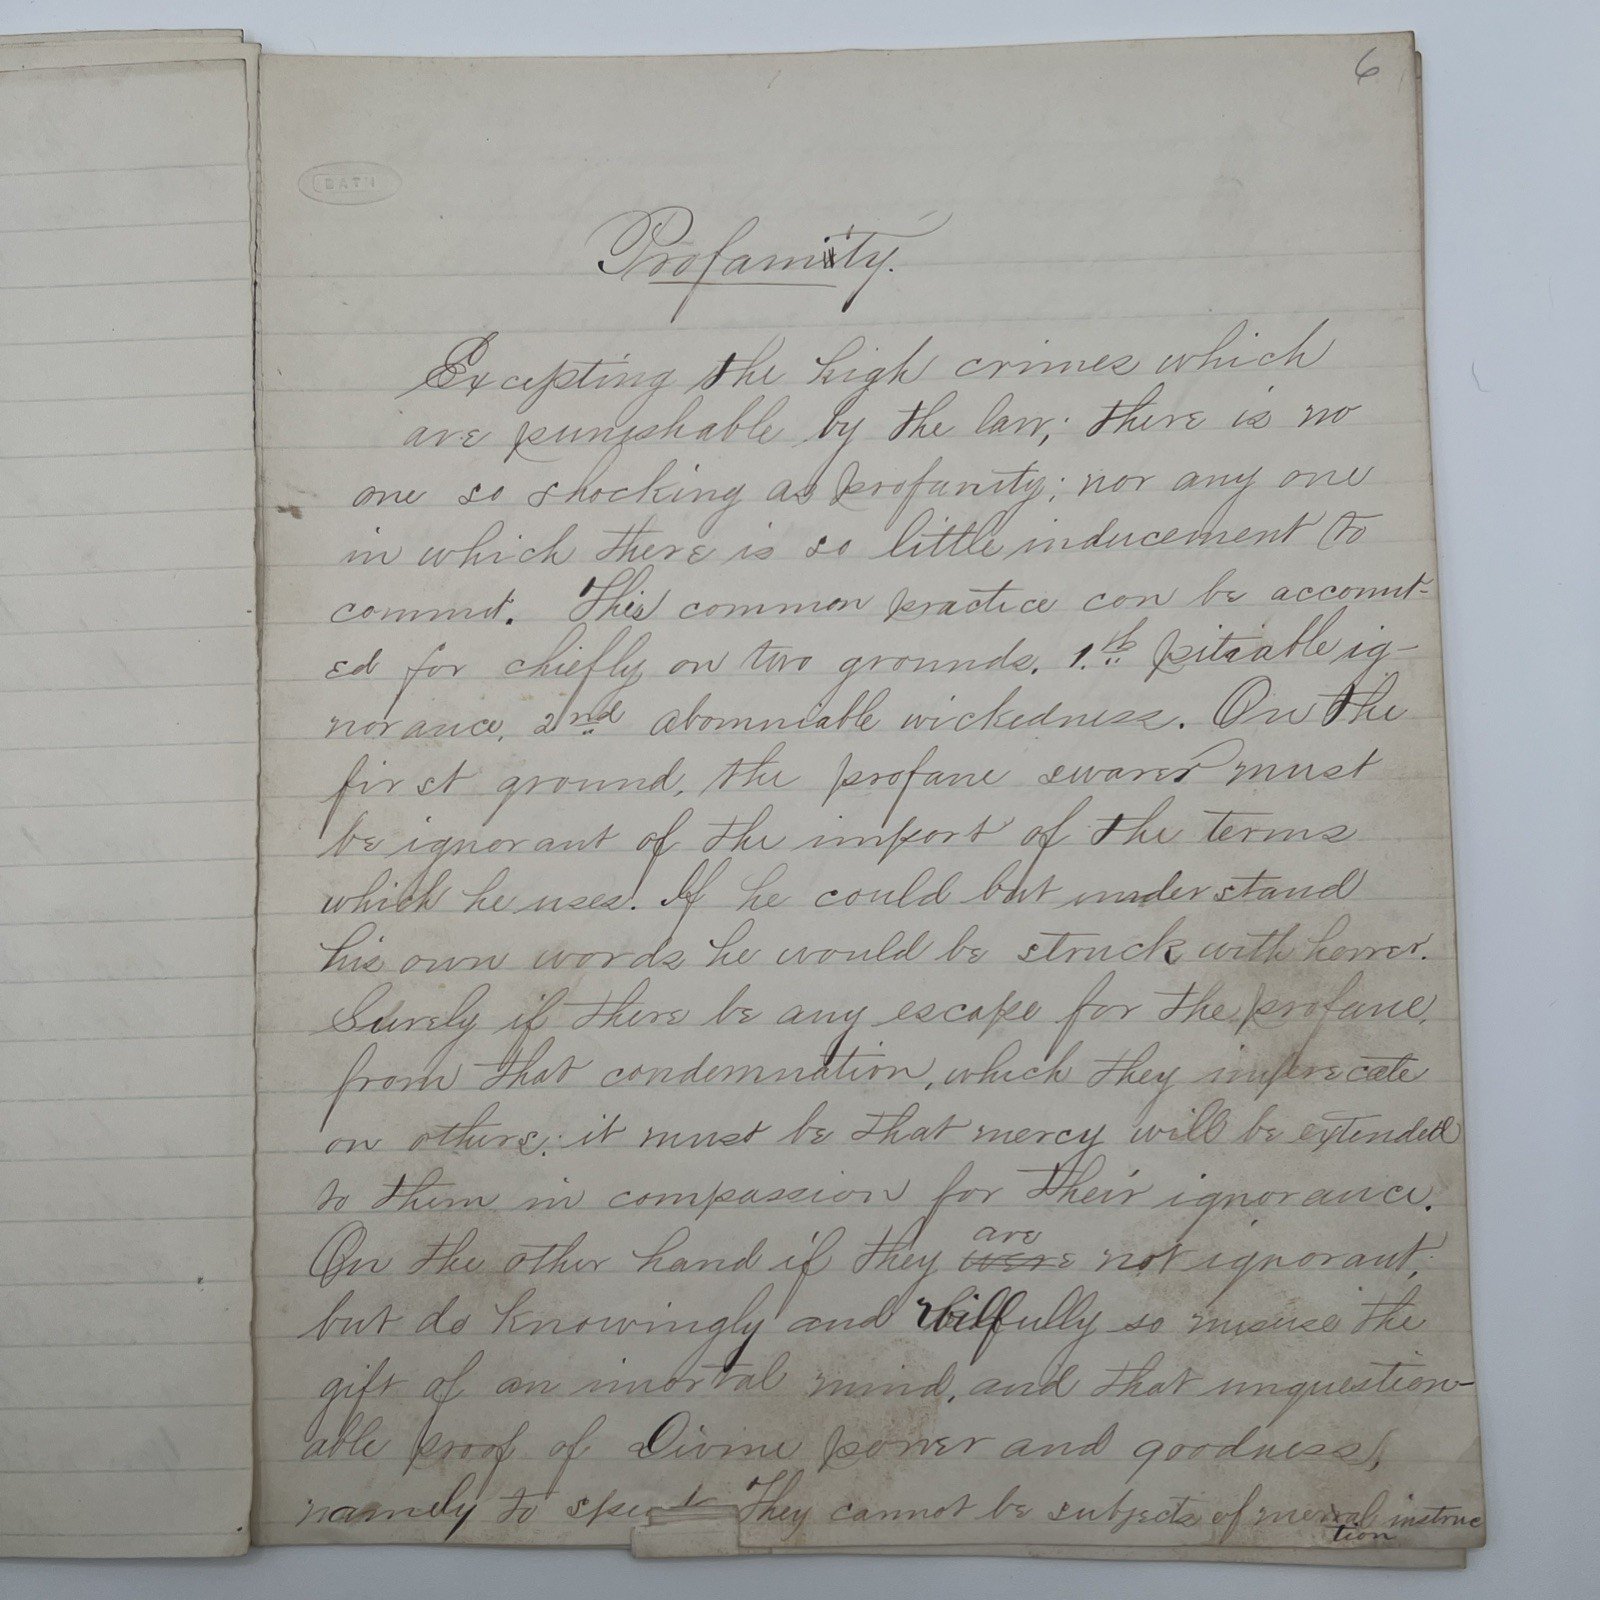 6
BATH
Profanity.
Excepting the high crimes which
are punishable by the law; there is no
one so shocking as profanity; nor any one
in which there is so little inducement to
commit. This common practice can be account-
ed for chiefly on two grounds. 1.th pitiable ig-
norance, 2nd abomniable wickedness. On the
first ground, the profane swarer must
be ignorant of the import of the terms
which he uses. If he could but understand
his own words he would be struck with horror.
Surely if there be any escape for the profane,
from that condemnation, which they imprecate
on others; it must be that mercy will be extended
to them in compassion for their ignorance.
are
On the other hand if they were not ignorant;
but do knowingly and willfully so misuse the
gift of an imortal mind, and that unquestion-
able proof of Divine power and goodness,
namely to speak They cannot be subjects of merral instruc
tion